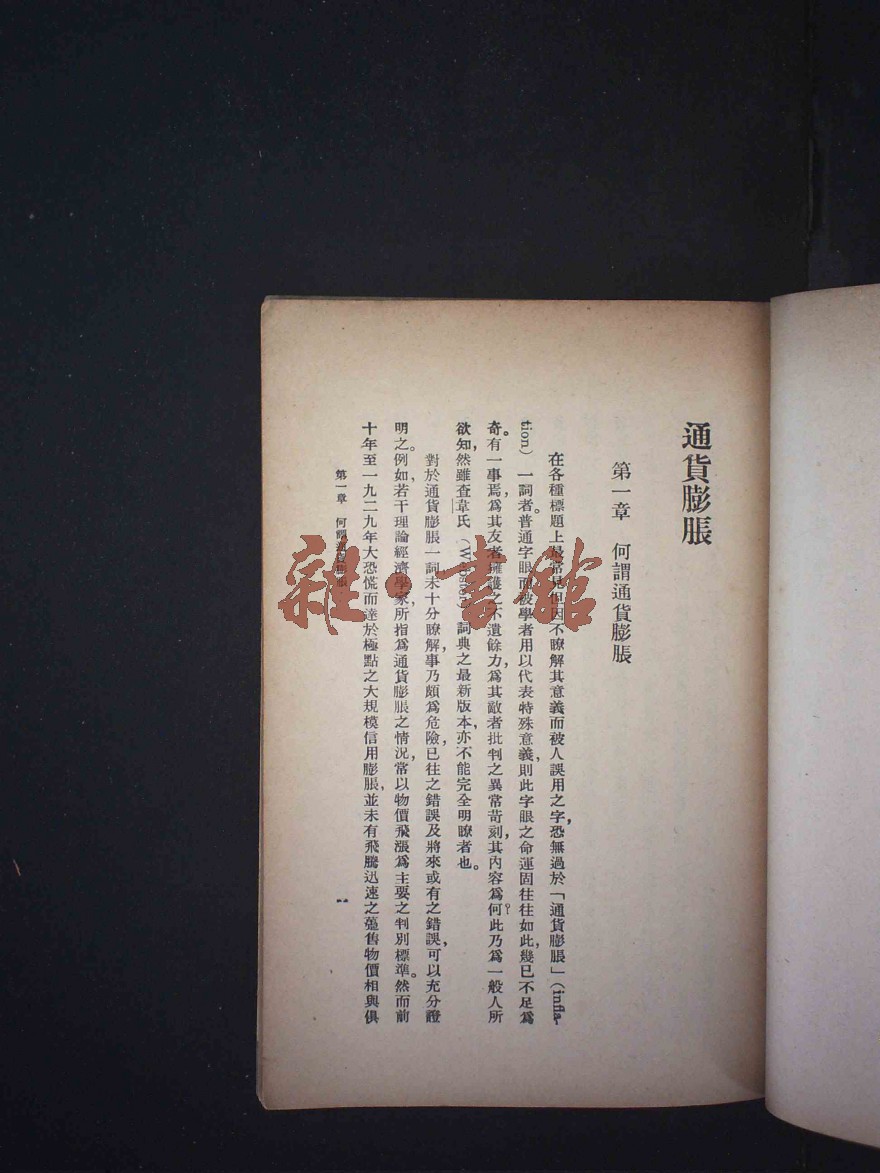 通貨膨脹
第一章 何謂通貨膨脹
在各種標題上最常見但因不瞭解其意義而被人誤用之字，恐無過於「通貨膨脹」（infla-
tion）一詞者。普通字眼而被學者用以代表特殊意義，則此字眼之命運固往往如此，幾已不足爲
奇。有一事焉，爲其友者擁護之不遺餘力，爲其敵者批判之異常苛刻，其內容爲何？此乃爲一般人所
欲知，然雖查韋氏（Webster）詞典之最新版本，亦不能完全明瞭者也。
對於通貨膨脹一詞未十分瞭解，事乃頗爲危險，已往之錯誤及將來或有之錯誤，可以充分證
明之。例如，若干理論經濟學家所指爲通貨膨脹之情況，常以物價飛漲爲主要之判別標準。然而前
十年至一九二九年大恐慌而達於極點之大規模信用膨脹，並未有飛騰迅速之躉售物價相與俱
第一章 何謂通貨膨脹
一
雜·書館